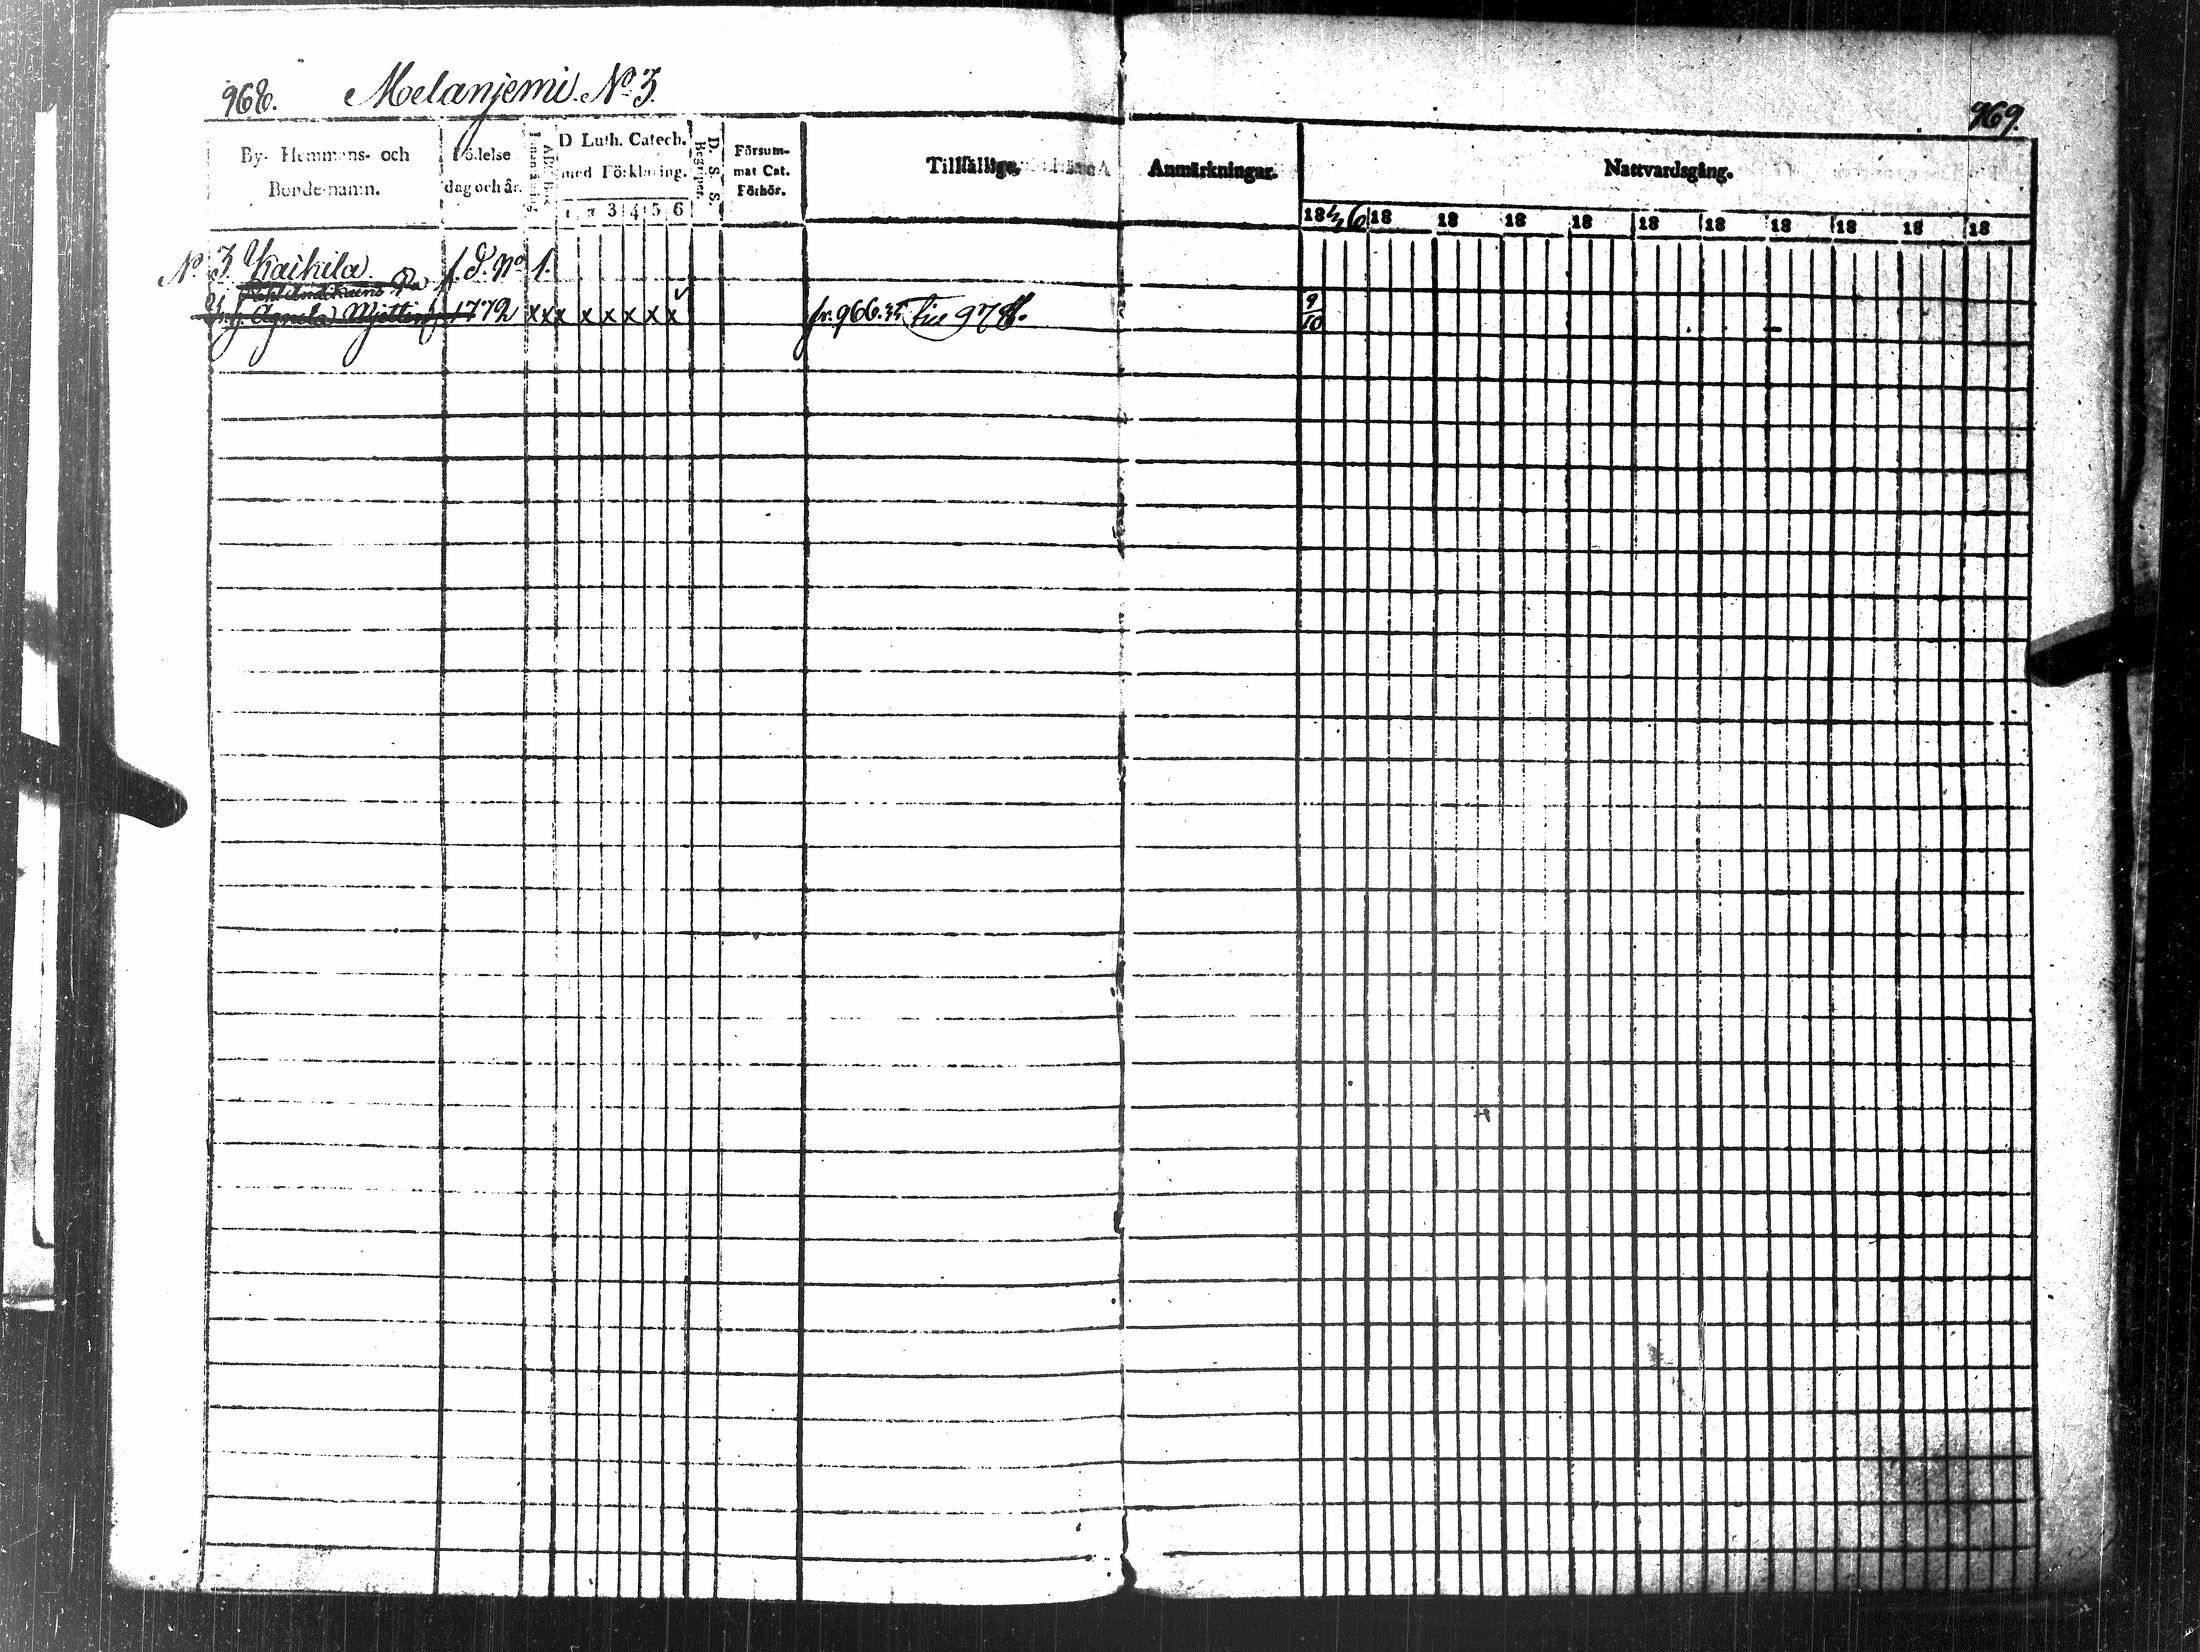 968. Melanjemi. No 3.
969.
By- Hemmans- och
Bonde-namn.
Födelse
dag och år.
Innanläsning
D Luth. Catech.
med Förklaring.
1 2 3 4 5 6
D. S. S.
Begreper.
Försum-
mat Cat.
Förhör.
Tillfällige
Anmärkningar.
Nattvardsgång.
18 6 18 18 18 18 18 18 18 18 18 18
No 3 Kaikila f. d. No 1.
Agneta 1772 x x x x x x x x fr. 966. 35 till 978. 9/10